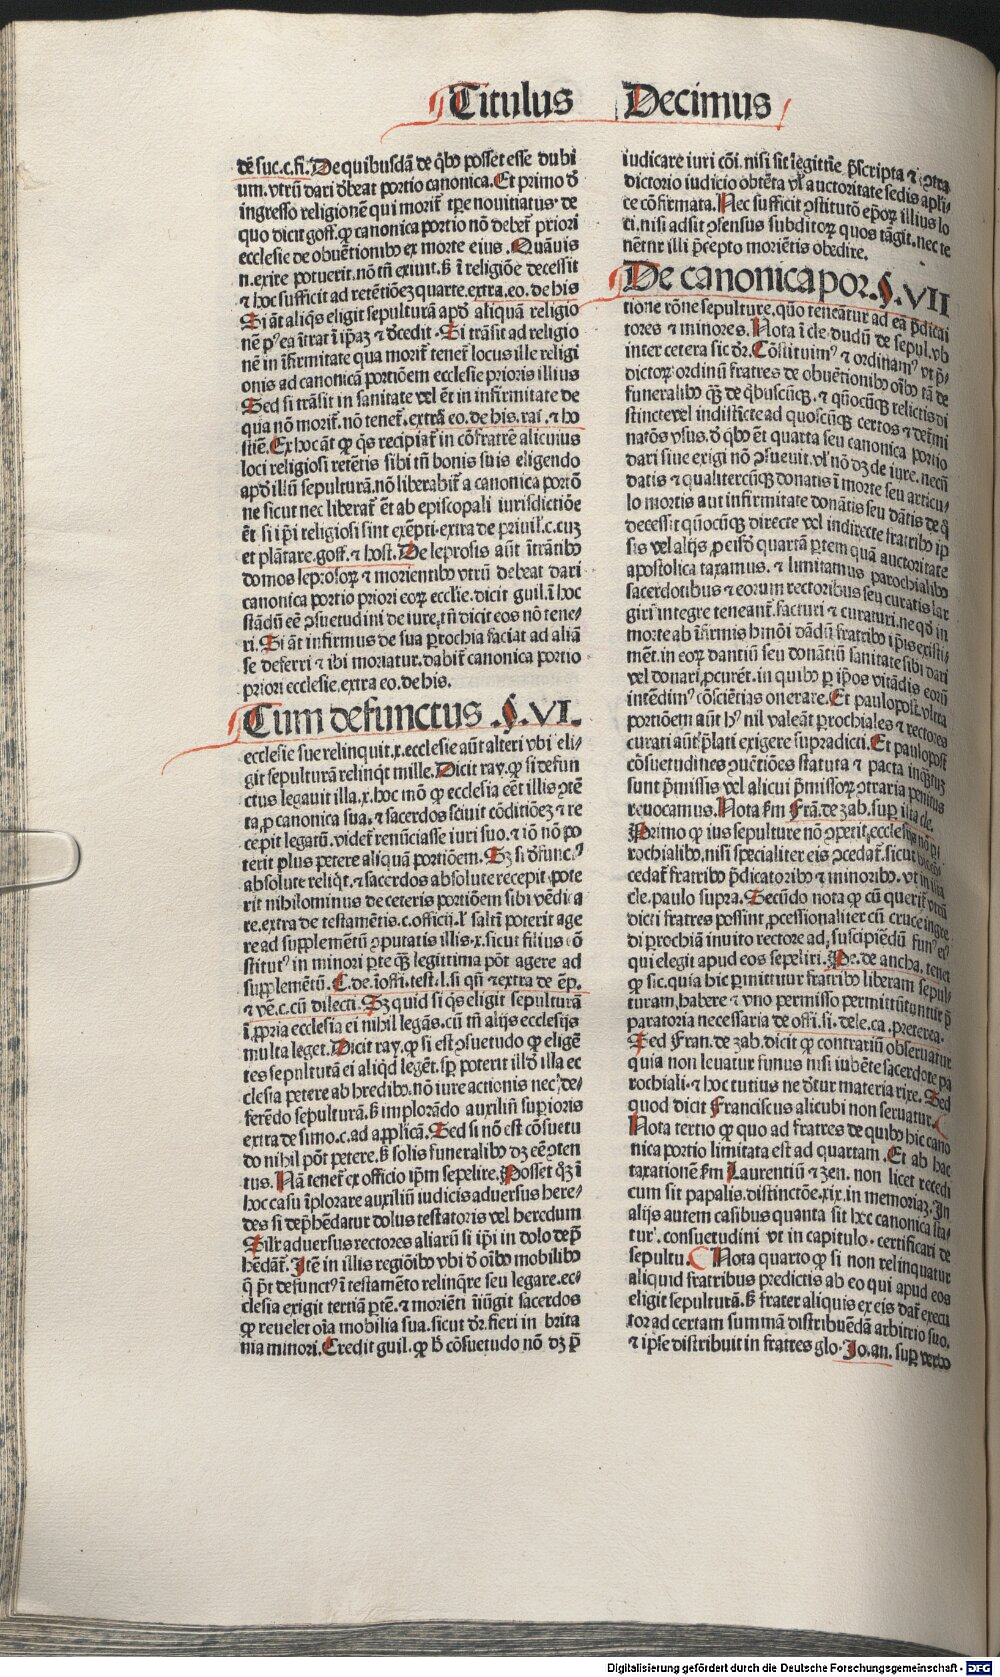 Titulus Decimus
dẽ suc.c.fi. De quibusdã de q̃bꝯ posset esse dubi
um. vtrũ dari d̃beat portio canonica. Et primo d̃
ingresso religionẽ qui morit̃ tꝑe nouitiatus. de
quo dicit goff. ꝙ canonica portio nõ debet̃ priori
ecclesie de obuẽtionibꝯ ex morte eius. Quãuis
n. exire potuerit. nõ tñ exiuit. s̃ ĩ religiõe decessit
⁊ hoc sufficit ad retẽtiõeꝫ quarte. extra. eo. de his
Si ãt aliq̃s eligit sepulturã apd̃ aliquã religio
nẽ pꝰ ea ĩtrat ĩ ip̃aꝫ ⁊ d̃cedit. Si trãsit ad religio
nẽ in ĩfirmitate qua morit̃ tenet̃ locus ille religi
onis ad canonicã portiõem ecclesie prioris illius
Sed si trãsit in sanitate vel ẽt in infirmitate de
qua nõ morit̃. nõ tenet̃. extra eo. de his. rai. ⁊ ho
stiẽ. Ex hoc ãt ꝙ q̃s recipiat̃ in cõfratrẽ alicuius
loci religiosi retẽtis sibi tñ bonis suis eligendo
apd̃ illũ sepulturã. nõ liberabit̃ a canonica portõ
ne sicut nec liberat̃ ẽt ab episcopali iurisdictiõe
ẽt si ip̃i religiosi sint exẽpti. extra de priuil. c. cuꝫ
et plãtare. goff. ⁊ host. De leprosis aũt ĩtrãtibꝯ
domos leprosoꝝ ⁊ morientibꝯ vtrũ debeat dari
canonica portio priori eoꝝ ecclie. dicit guil. ĩ hoc
stãdũ eẽ ↄsuetudini de iure. tñ dicit eos nõ tene/
ri. Si ãt infirmus de sua ꝑrochia faciat ad aliã
se deferri ⁊ ibi moriatur. dabit̃ canonica portio
priori ecclesie. extra eo. de his.
Cum defunctus .§.VI.
ecclesie sue relinquit. x. ecclesie aũt alteri vbi eli/
git sepulturã relinq̃t mille. Dicit ray. ꝙ si defun
ctus legauit illa. x. hoc mõ ꝙ ecclesia eẽt illis ↄtẽ
ta, ꝓ canonica sua. ⁊ sacerdos sciuit cõditiõeꝫ ⁊ re
cepit legatũ. videt̃ renũciasse iuri suo. ⁊ iõ nõ po
terit plus petere aliquã portiõem. Sꝫ si d̃funcꝰ
absolute reliq̃t. ⁊ sacerdos absolute recepit. pote
rit nihilominus de ceteris portiõem sibi vẽdica
re. extra de testamẽtis. c. officij. l̃ saltñ poterit age
re ad supplemẽtũ ↄputatis illis. x. sicut filius ↄ̃
stitutꝰ in minori ꝑte q̃ꝫ legittima põt agere ad
supplemẽtũ. C. de ĩoffi. test. l. si qñ ⁊ extra de ẽp.
⁊ vẽ. c. cũ dilecti. Sꝫ quid si q̃s eligit sepulturã
ĩ ꝓpria ecclesia ei nihil legãs. cũ tñ alijs ecclesijs
multa leget. Dicit ray. ꝙ si est ↄsuetudo ꝙ eligẽ
tes sepulturã ei aliq̃d legẽt. sꝑ poterit illd̃ illa ec
clesia petere ab hredibꝯ. nõ iure actionis nec. de/
ferẽdo sepulturã. s̃ implorãdo auxiliũ suꝑioris
extra de simo. c. ad apl̃icã. Sed si nõ est cõsuetu
do nihil põt petere. s̃ solis funeralibꝯ dꝫ eẽ ↄten
tus. Nã tenet̃ ex officio ip̃m sepelire. Posset q̃ꝫ ĩ
hoc casu ĩplorare auxiliũ iudicis aduersus here/
des si dep̃hẽdatur dolus testatoris vel heredum
Sil̃r aduersus rectores aliarũ si ip̃i in dolo dep̃
hẽdãt̃. Itẽ in illis regiõibꝯ vbi d̃ oĩbꝯ mobilibꝯ
q̃ p̃t defunctꝰ ĩ testamẽto relinq̃re seu legare. ec/
clesia exigit tertiã ꝑtẽ. ⁊ moriẽti ĩiũgit sacerdos
ꝙ reuelet oĩa mobilia sua. sicut dr̃. fieri in brita
nia minori. Credit guil. ꝙ h̃ cõsuetudo nõ dꝫ p̃
iudicare iuri cõi. nisi sit legittiẽ p̃scripta ⁊ ↄtra
dictorio iudicio obtẽta vl̃ auctoritate sedis apl̃i/
ce cõfirmata. Nec sufficit ↄstitutõ ep̃oꝝ illius lo
ci. nisi adsit ↄsensus subditoꝝ quos tãgit. nec te
nẽtur illi p̃cepto moriẽtis obedire.
De canonica por. §.VII
tione rõne sepulture. quõ teneãtur ad ea p̃dicai
tores ⁊ minores. Nota ĩ cle. dudũ de sepul. vb
inter cetera sic dr̃. Cõstituimꝰ ⁊ ordinamꝰ vt p̃/
dictoꝝ ordinũ fratres de obuẽtionibꝯ oĩbꝯ tã de
funeralibꝯ q̃ꝫ de q̃buscũqꝫ. ⁊ qñocũqꝫ relictis di
stincte vel indistĩcte ad quoscũqꝫ certos ⁊ det̃mi
natõs vsus. d̃ q̃bꝯ ẽt quarta seu canonica portio
dari siue exigi nõ ↄsueuit. vl̃ nõ dꝫ de iure. necñ
datis ⁊ qualitercũqꝫ donatis ĩ morte seu articu/
lo mortis aut infirmitate donãtis seu dãtis de q̃
decessit qñocũqꝫ directe vel indirecte fratribꝯ ip̃
sis vel alijs, ꝓ eisd̃ quartã ꝑtem quã auctoritate
apostolica taxamus. ⁊ limitamus parochialibꝯ
sacerdotibus ⁊ eorum rectoribus seu curatis lar
giri integre teneant̃. facturi ⁊ curaturi. ne qd̃ in
morte ab ĩfirmis hmõi dãdũ fratribꝯ ip̃is existi/
mẽt. in eoꝝ dantiũ seu donãtiũ sanitate sibi dari
vel donari, ꝓcurẽt. in quibꝯ ꝑ ip̃os vitãdis eorũ
intẽdimꝰ cõsciẽtias onerare. Et paulo post. vltra
portiõem aũt hꝰ nil valeãt ꝑrochiales ⁊ rectores
curati aũt p̃lati exigere supradicti. Et paulo post
cõsuetudines ↄuẽtiões statuta ⁊ pacta inq̃ꝫtuꝫ
sunt p̃missis vel alicui p̃missoꝝ ↄtraria penitus
reuocamus. Nota sm̃ Frã. de zab. suꝑ ista cle.
Primo ꝙ ius sepulture nõ ↄperit. ecclesijs nõ ꝑ
rochialibꝯ. nisi specialiter eis ↄcedat̃. sicut
cedat̃ fratribꝯ p̃dicatoribꝯ ⁊ minoribꝯ. vt in ista
cle. paulo supra. Secũdo nota ꝙ cũ querit̃ vtrũ
dicti fratres possint, ꝓcessionaliter cũ cruce ingre
di ꝑrochiã inuito rectore ad, suscipiẽdũ funꝰ eiꝰ
qui elegit apud eos sepeliri. Pe. de ancha. tenet
ꝙ sic. quia hic ꝑmittitur fratribꝯ liberam sepul/
turam. habere ⁊ vno permisso permittũtuntur p̃
paratoria necessaria de offi. si. dele. ca. preterea.
Sed Fran. de zab. dicit ꝙ contrariũ obseruatur
quia non leuatur funus nisi iubẽte sacerdote pa
rochiali. ⁊ hoc tutius ne d̃tur materia rixe. Sed
quod dicit Franciscus alicubi non seruatur.
Nota tertio ꝙ quo ad fratres de quibꝯ hic cano
nica portio limitata est ad quartam. Et ab hac
taxationẽ sm̃ Laurentiũ ⁊ zen. non licet recedi
cum sit papalis. distinctõe. xix. in memoriaꝫ. In
alijs autem casibus quanta sit hec canonica sta/
turꝰ. consuetudini vt in capitulo. certificari de
sepultu. Nota quarto ꝙ si non relinquatur
aliquid fratribus predictis ab eo qui apud eos
eligit sepulturã. s̃ frater aliquis ex eis dat̃ execu
tor ad certam summã distribuẽdã arbitrio suo.
⁊ ipse distribuit in fratres glo. Io. an. suꝑ verbo
Digitalisierung gefördert durch die Deutsche Forschungsgemeinschaft - DFG